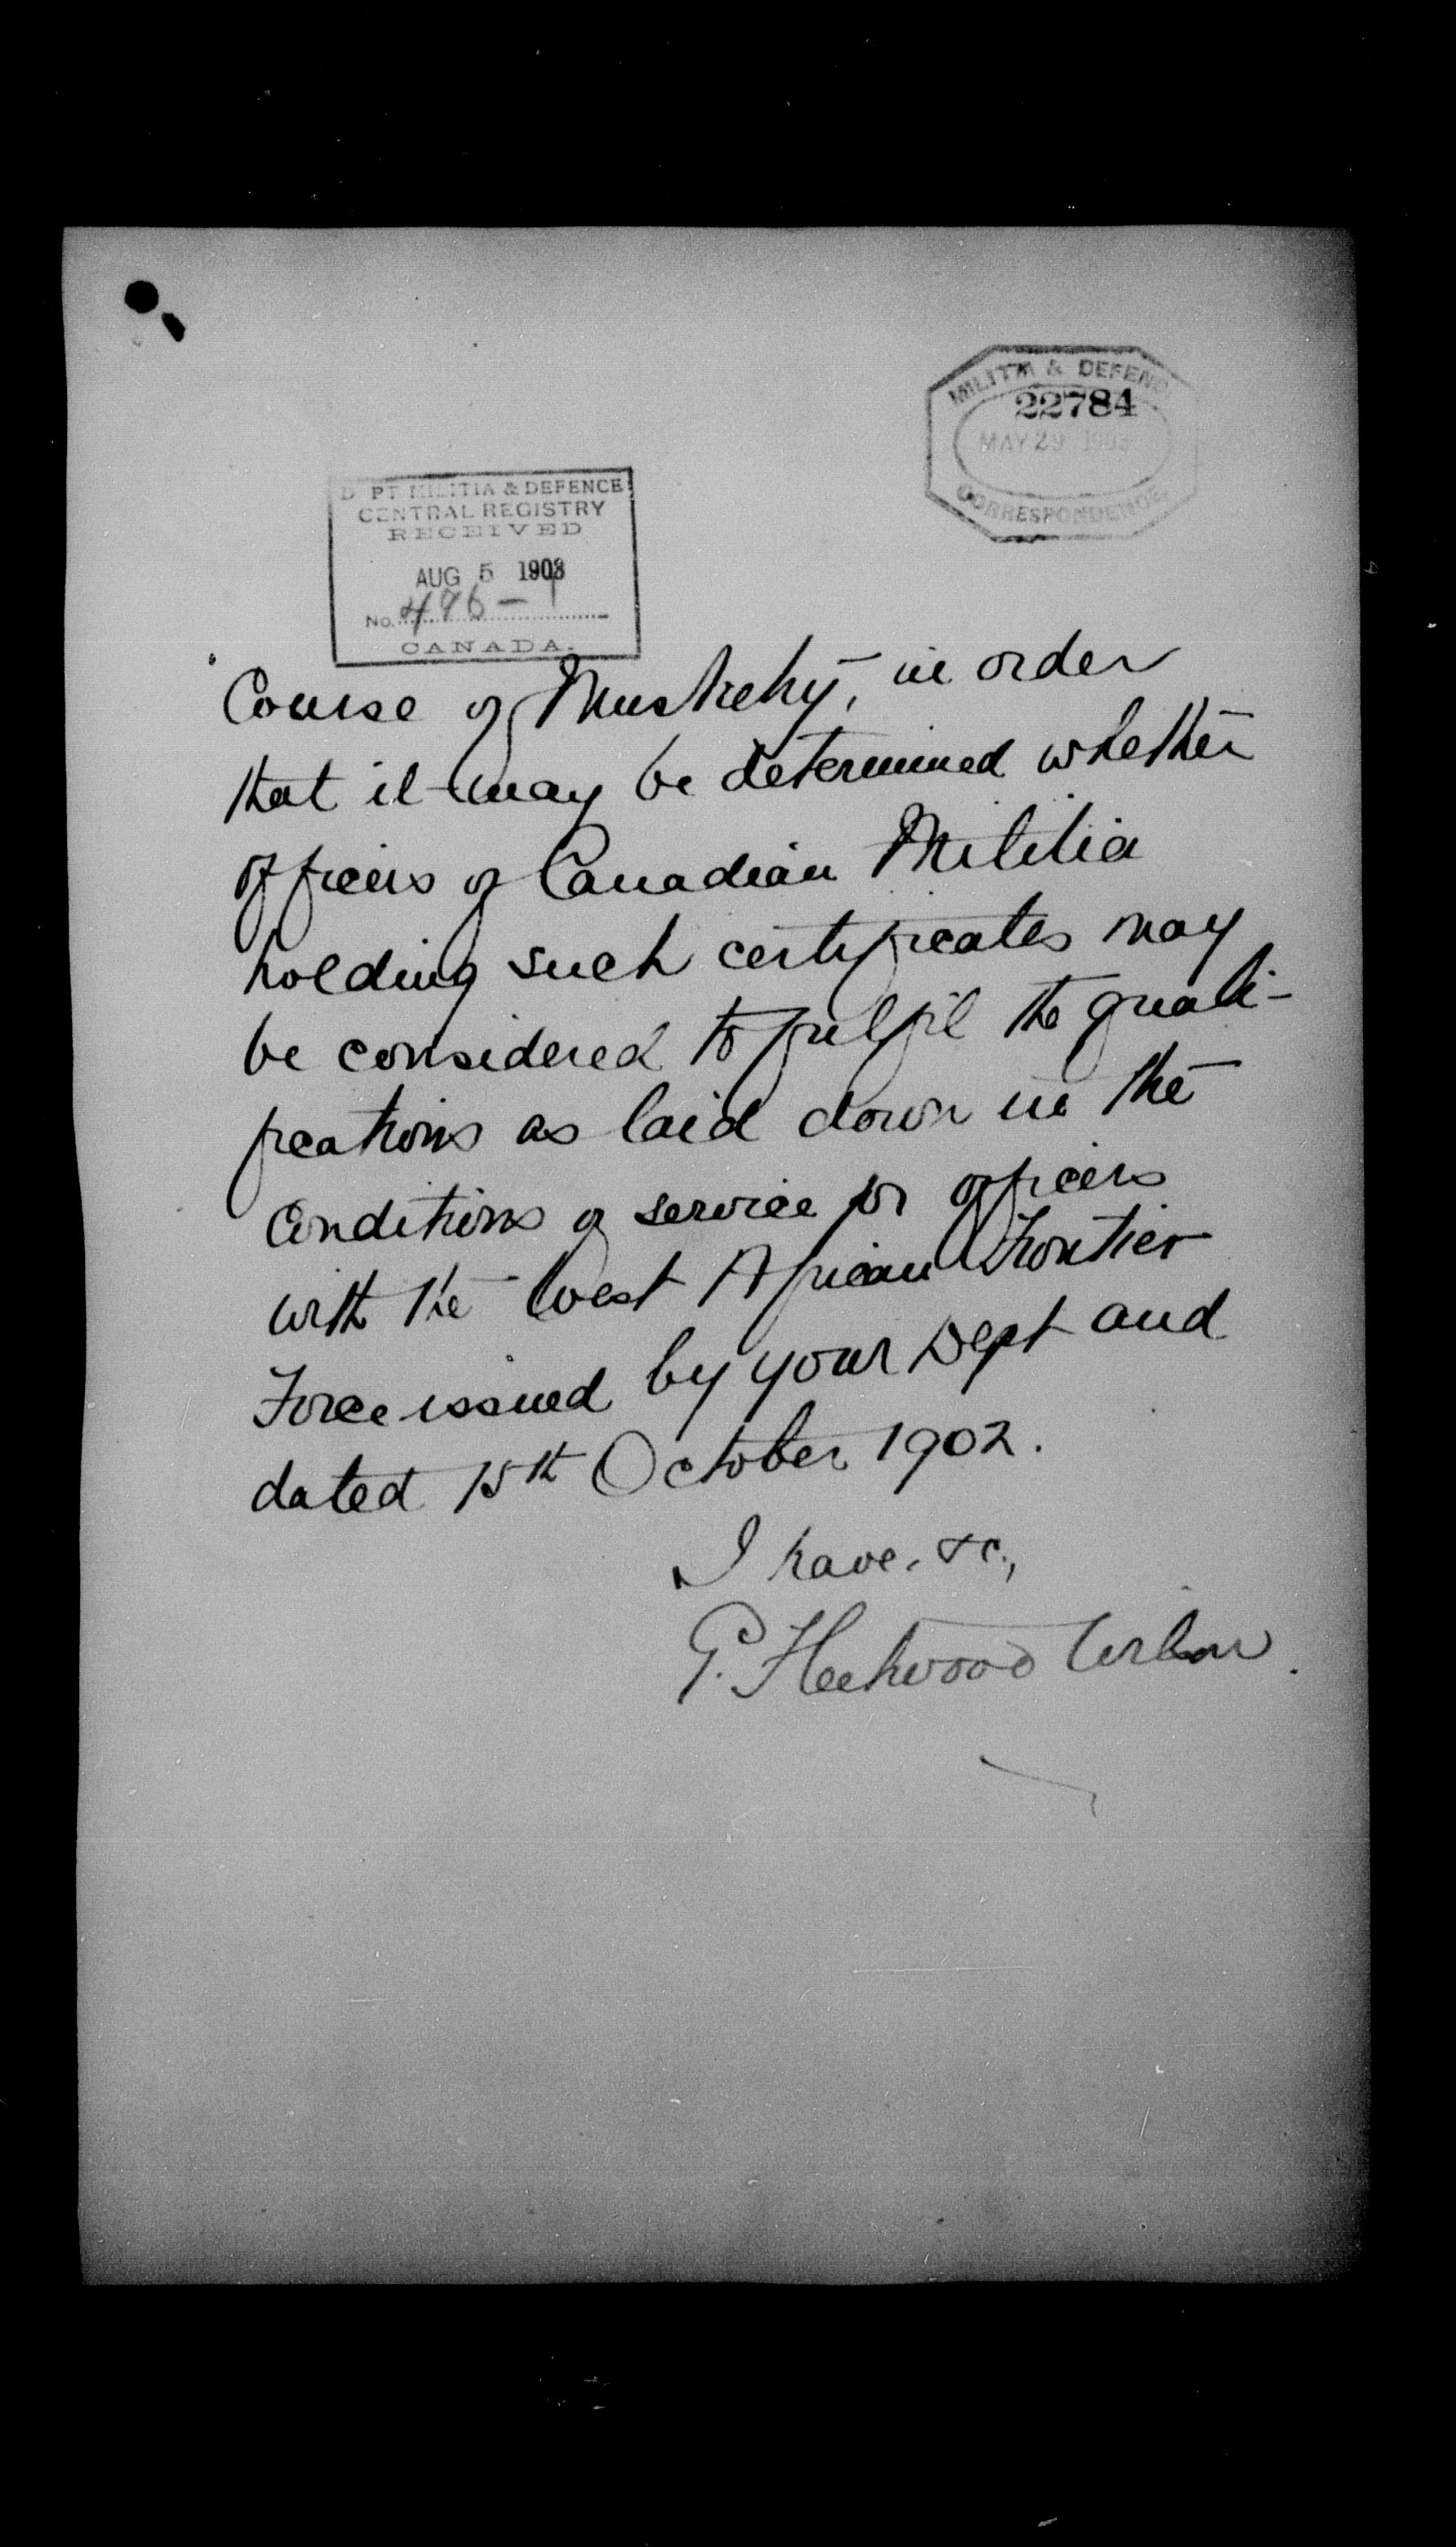 MILITIA & DEFENCE
22784
MAY 29 1903
CORRESPONDENCE
DEPT MILITIA & DEFENCE
CENTRAL REGISTRY
RECEIVED
AUG 5 1903
No. 496-1
CANADA.
Course of Musketry, in order
that it may be determined whether
officers of Canadian Militia
holding such certificates may
be considered to fulfil the quali-
fications as laid down in the
Conditions of service for officers
with the West African Frontier
Force issued by your Dept and
dated 15th October 1902.
I have, &c.,
G. Fleetwood Wilson.